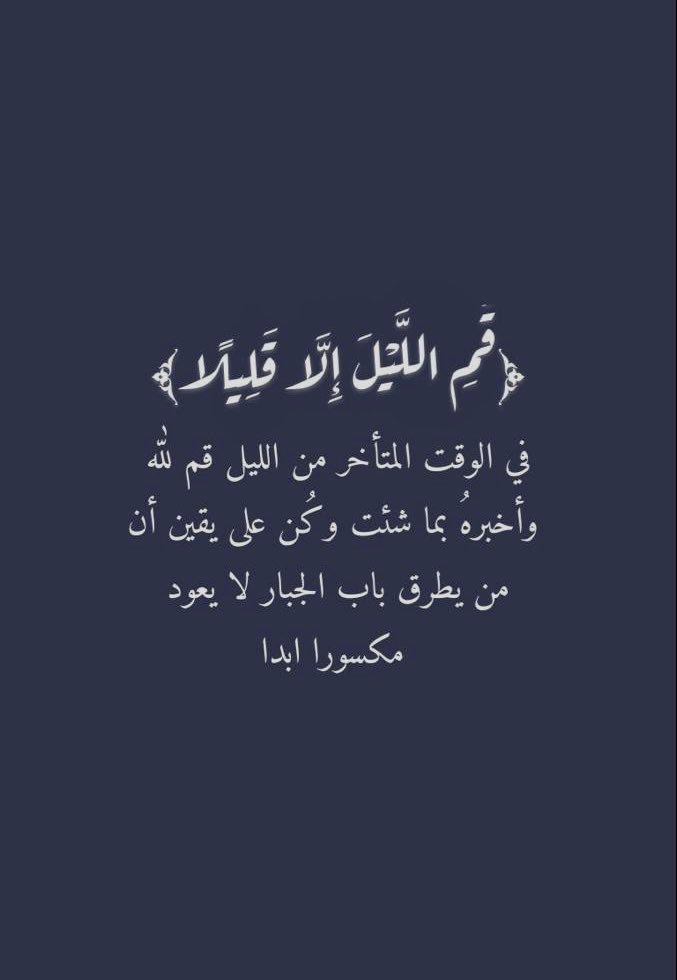 ﴿قُمِ اللَّيْلَ إِلَّا قَلِيلًا﴾
في الوقت المتأخر من الليل قم لله
وأخبرهُ بما شئت وكُن على يقين أن
من يطرق باب الجبار لا يعود
مكسورا ابدا